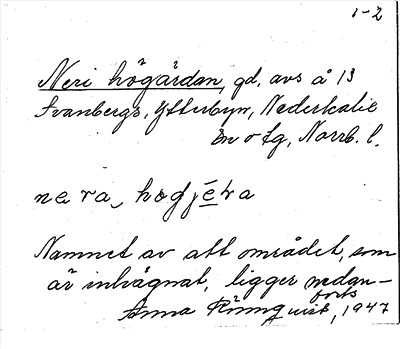 1-2
Neri högärdan, gd, avs å 13
Svanbergs, Ytterbyn, Nederkalix
sn o tg, Norrb. l.
nera, høgjeṛa
Namnet av att området, som
är inhägnat, ligger nedan-
forts
Anna Rönnquist, 1947